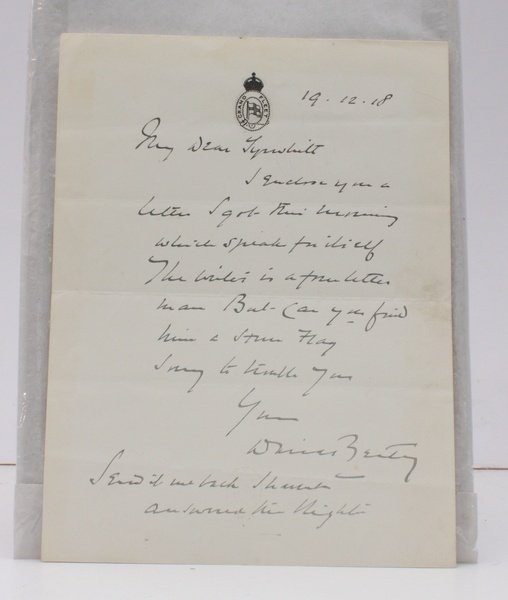 GRAND FLEET
19 . 12 . 18
My Dear Tyrwhitt
I enclose you a
letter I got this morning
which speaks for itself
The writer is a
man But Can you find
him a Flag
Sorry to trouble you
Yours
David Beatty
Send it me back I haven't
answered the Knight